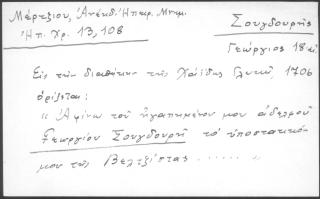 Μέρτζιου, Ἀνέκδ. Ἠπειρ. Μνημ.
Ἠπ. Χρ. 13, 108
Σουγδουρῆς
Γεώργιος 18 αἰ
Εἰς τὴν διαθήκην τῆς Χάϊδως Γλυκῦ, 1706
ὁρίζεται:
"Ἀφίνω τοῦ ἠγαπημένου μου ἀδελφοῦ
Γεωργίου Σουγδουρῆ τὸ ὑποστατικό-
μου τῆς Βελτζίστας ...... "